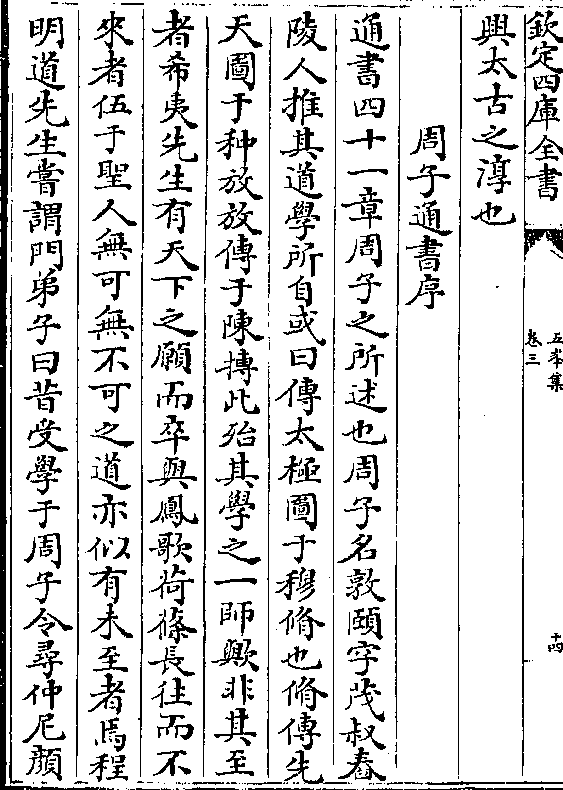 欽定四庫全書
五峯集
卷三
十四
與太古之淳也
周子通書序
通書四十一章周子之所述也周子名敦頤字茂叔舂
陵人推其道學所自或曰傳太極圖于穆脩也脩傳先
天圖于种放放傳于陳摶此殆其學之一師歟非其至
者希夷先生有天下之願而卒與鳳歌荷蓧長往而不
來者伍于聖人無可無不可之道亦似有未至者焉程
明道先生嘗謂門弟子曰昔受學于周子令尋仲尼顔